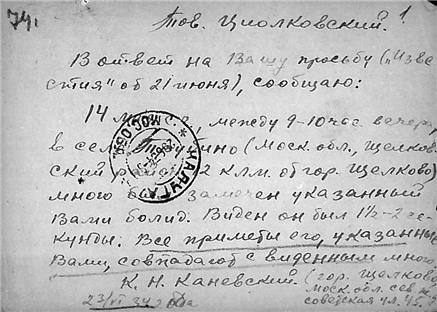 74.
1
Тов. Циолковский.
В ответ на Вашу просьбу („Изве
стия" от 21 июня), сообщаю:
14 между 9-10 час. вечера,
в сел (Моск. обл., Щелков
ский 2 клм. от гор. Щелково)
мною был замечен указанный
Вами болид. Виден он был 1½-2 се-
кунды. Все приметы его, указанные
Вами, совпадают с виденным мною
К. Н. Каневский (гор. Щелково
моск. обл.
советская ул. 45.
23/VI 34 года
КАЛУГА МОС. ОБЛ.